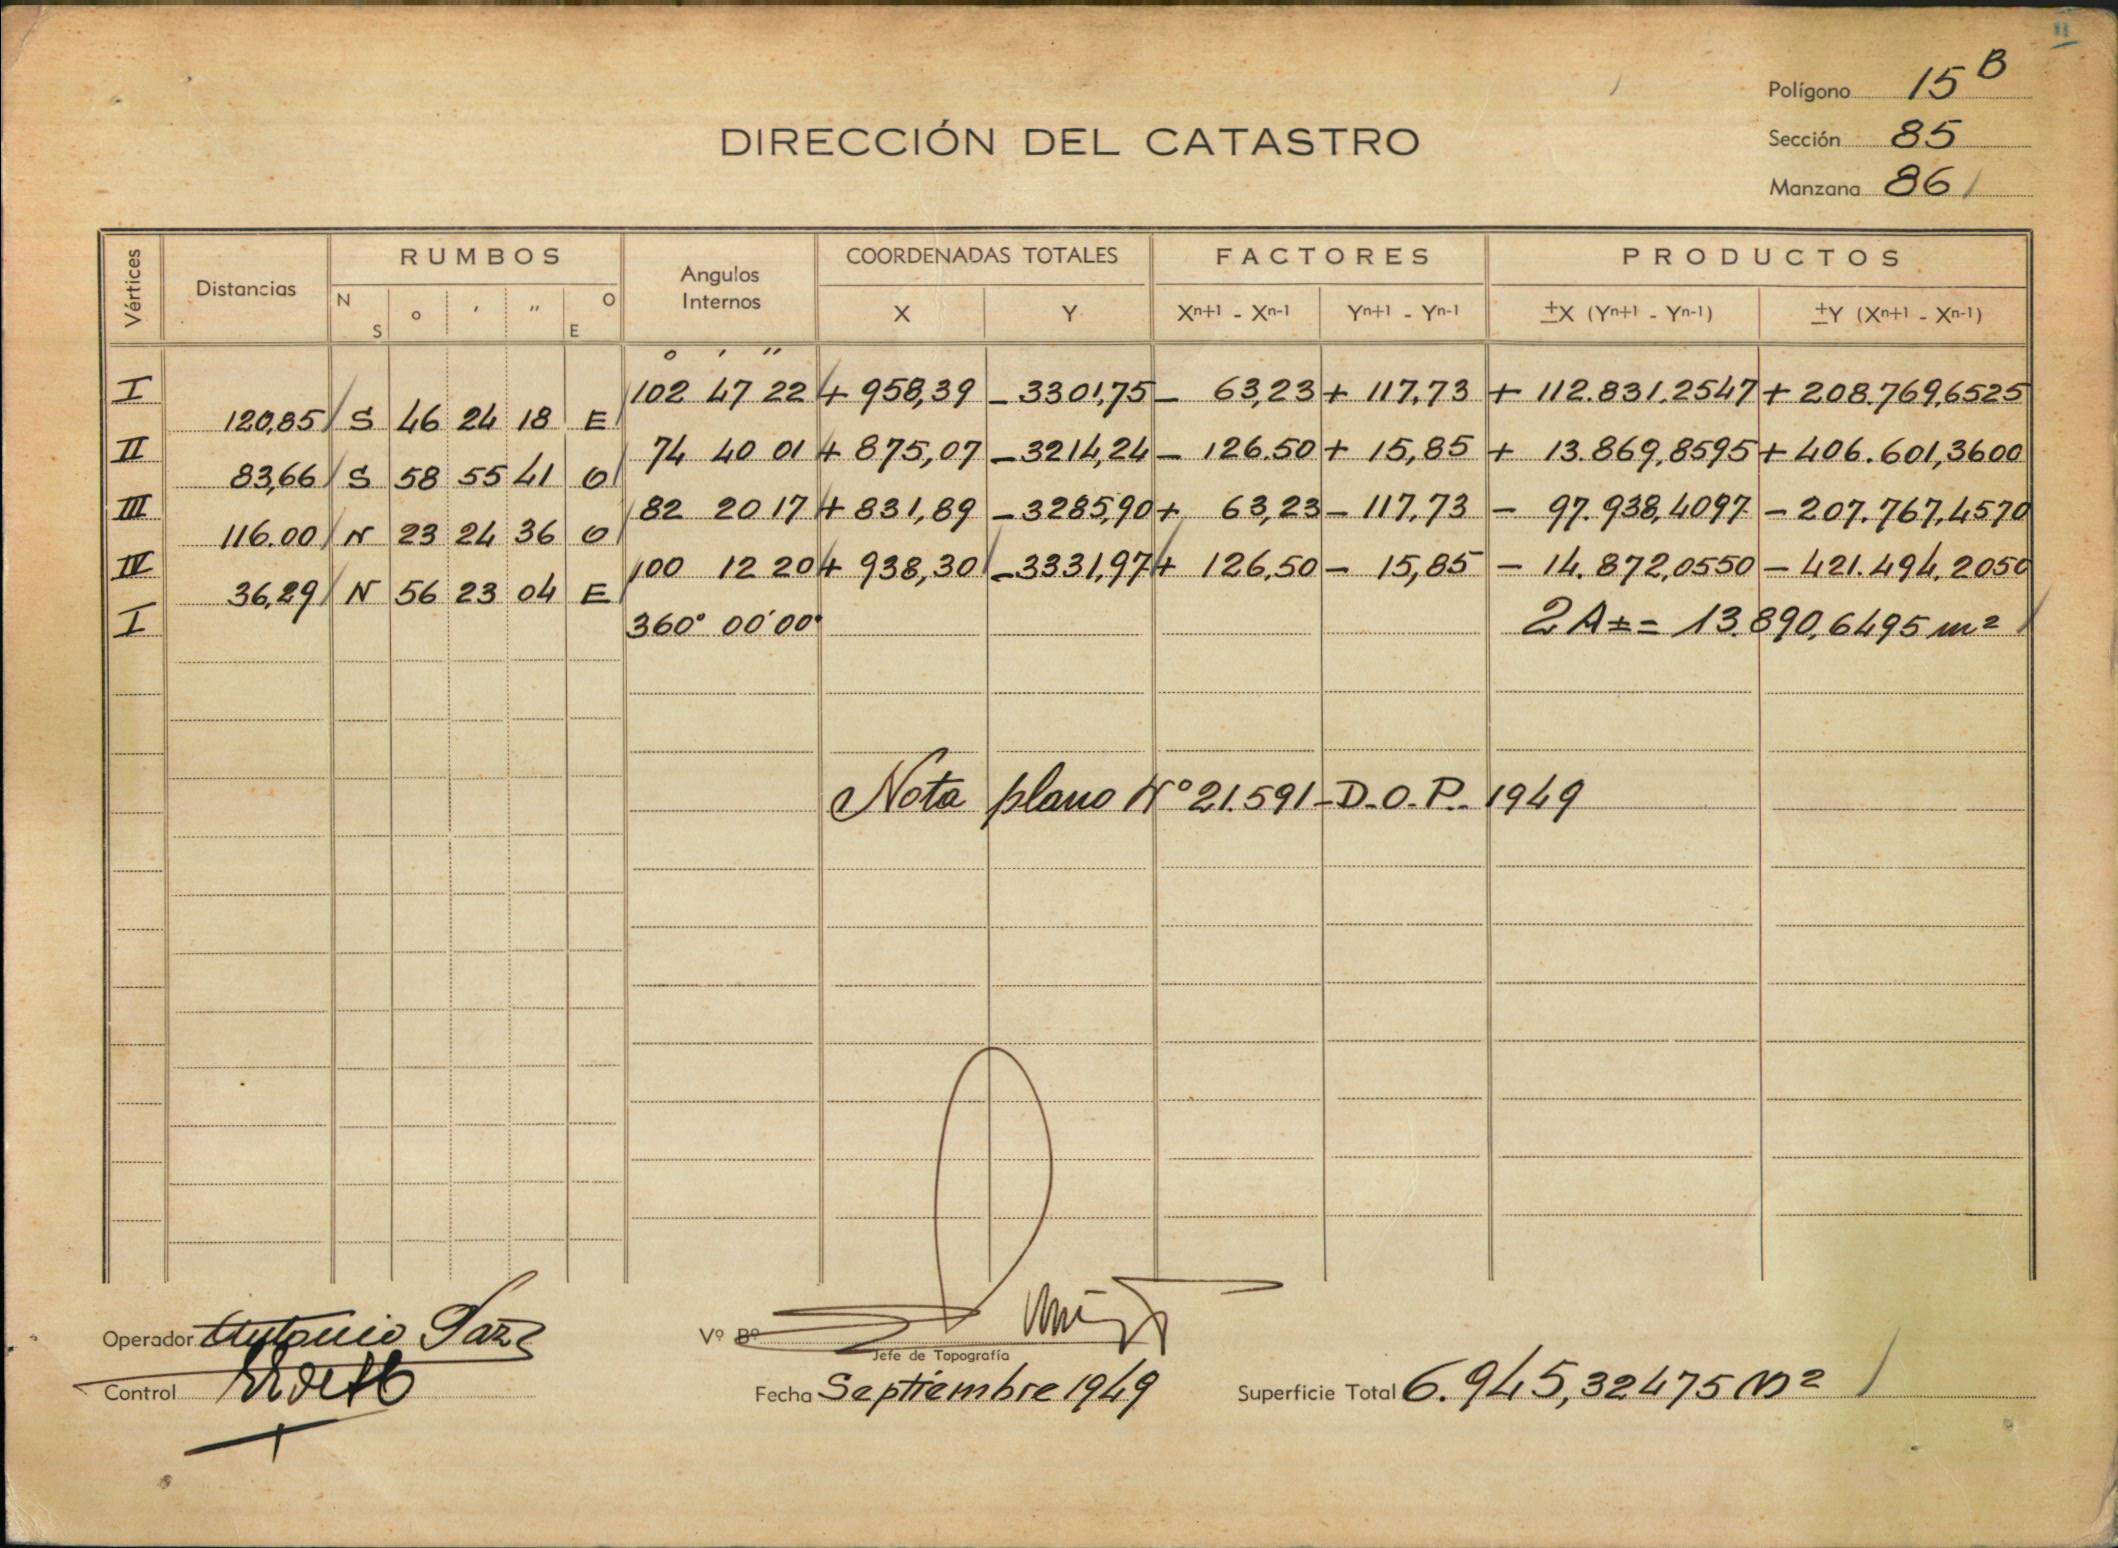 "
Polígono 15 B
DIRECCIÓN DEL CATASTRO
Sección 85
Manzana 86
Vértices Distancias RUMBOS Angulos Internos COORDENADAS TOTALES FACTORES PRODUCTOS
N S o ' " O E X Y Xn+1 - Xn-1 Yn+1 - Yn-1 ±X (Yn+1 - Yn-1) ±Y (Xn+1 - Xn-1)
o ' "
I 102 47 22 + 958,39 - 3301,75 - 63,23 + 117,73 + 112.831,2547 + 208.769,6525
120,85 S 46 24 18 E
II 74 40 01 + 875,07 - 3214,24 - 126.50 + 15,85 + 13.869,8595 + 406.601,3600
83,66 S 58 55 41 O
III 82 20 17 + 831,89 - 3285,90 + 63,23 - 117,73 - 97.938,4097 - 207.767,4570
116.00 N 23 24 36 O
IV 100 12 20 + 938,30 - 3331,97 + 126,50 - 15,85 - 14.872,0550 - 421.494,2050
36,29 N 56 23 04 E
I 360° 00' 00" 2A± = 13.890,6495 m²
Nota plano Nº 21.591 - D.O.P. 1949
Operador Antonio Paz
Vº Bº
Jefe de Topografía
Control
Fecha Septiembre 1949
Superficie Total 6.945,32475 m²